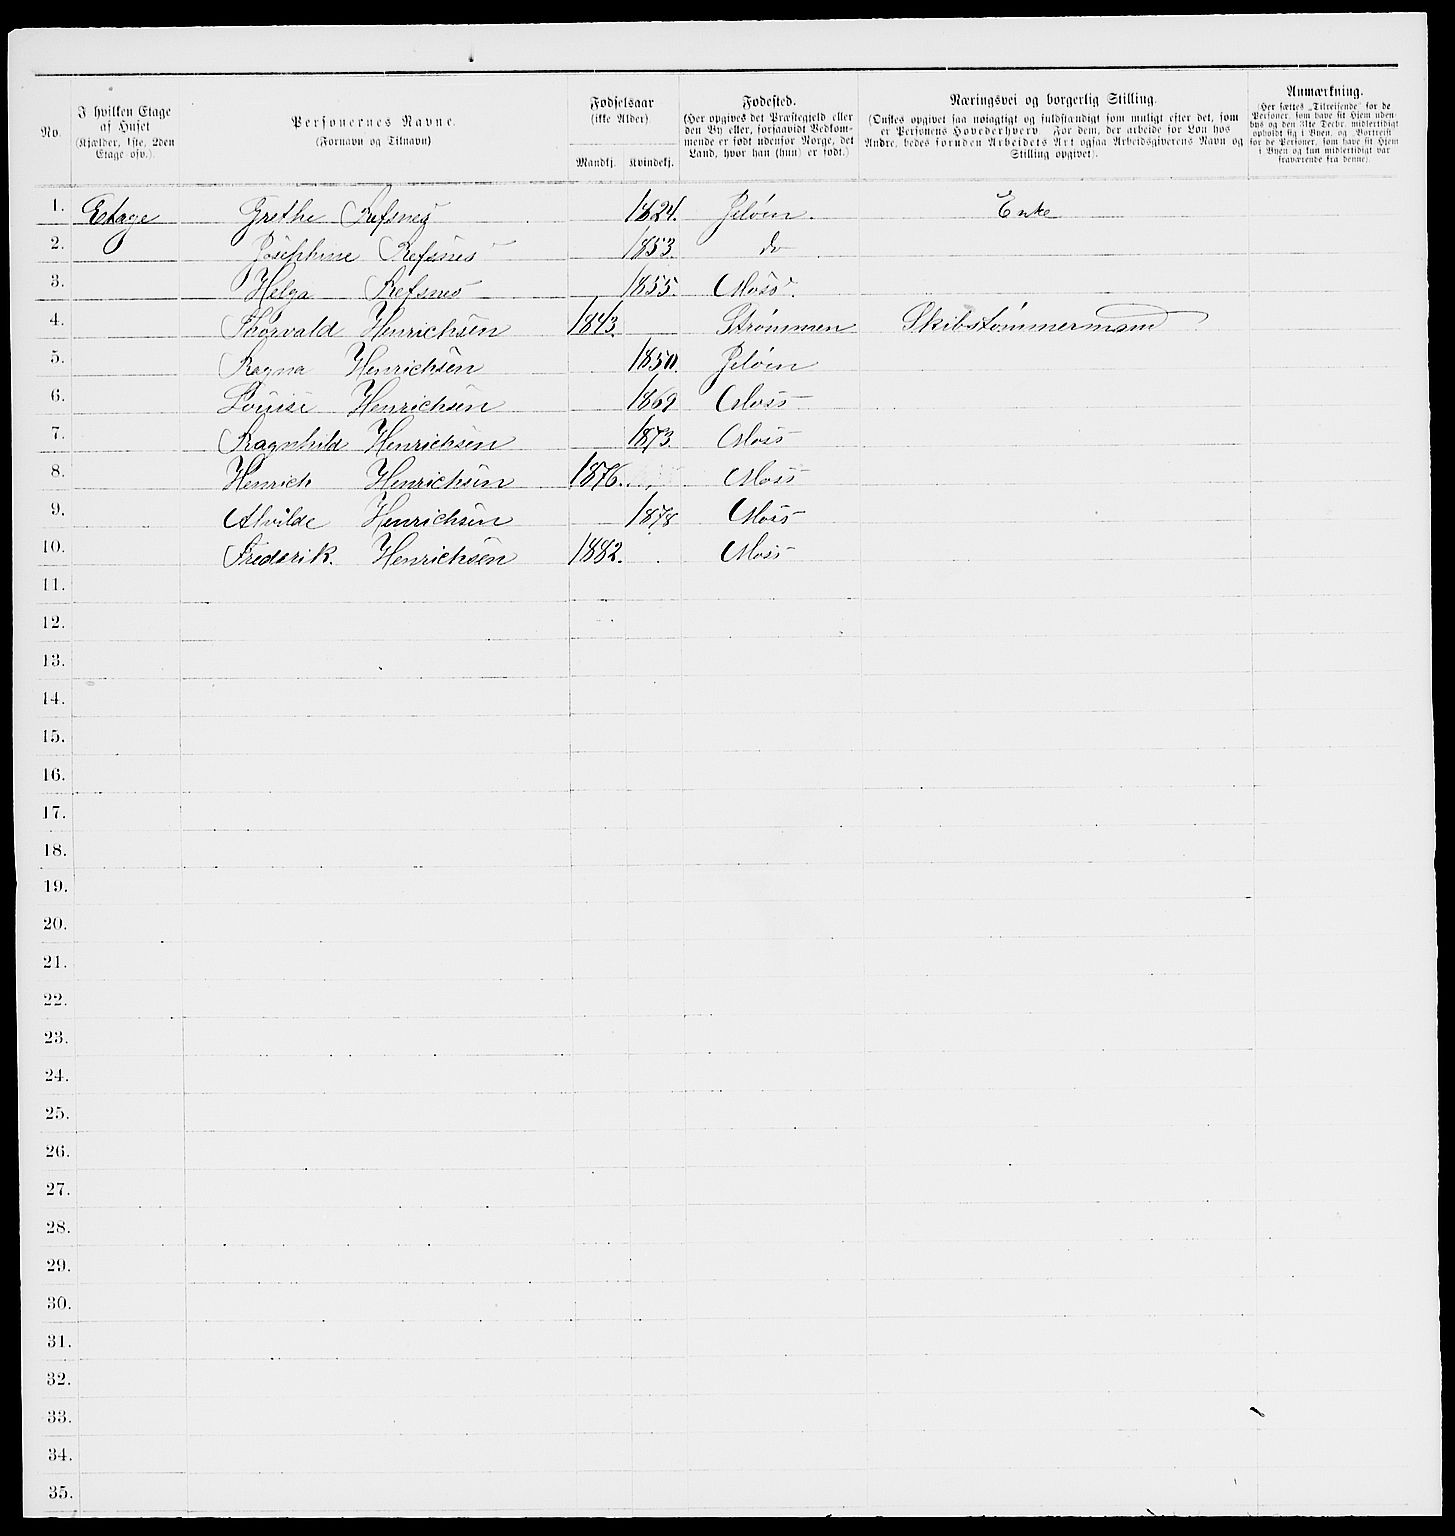 No.
I hvilken Etage af Huset (Kjælder, 1ste, 2den Etage osv.).
Personernes Navne. (Fornavn og Tilnavn)
Fødselsaar (ikke Alder)
Mandkj. Kvindekj.
Fødested. (Her opgives det Præstegjeld eller den By eller, forsaavidt Vedkommende er født udenfor Norge, det Land, hvor han (hun) er født.)
Næringsvei og borgerlig Stilling. (Ønskes opgivet saa nøiagtigt og fuldstændigt som muligt efter det, som er Personens Hovederhverv For dem, der arbeide for Løn hos Andre, bedes foruden Arbeidets Art ogsaa Arbeidsgiverens Navn og Stilling opgivet).
Anmærkning. (Her sættes „Tilreisende" for de Personer, som have sit Hjem udenbys og den 31te Decbr. midlertidigt opholdt sig i Byen, og „Bortreist" for de Personer, som have sit Hjem i Byen og kun midlertidigt var fraværende fra denne).
1. Etage Grethe Refsnes 1824. Jeløen. Enke
2. Josephine Refsnes 1853. do
3. Helga Refsnes 1855. Moss.
4. Thorvald Henrichsen 1843. Strømmen Skibstømmermand
5. Ragna Henrichsen 1850. Jeløen
6. Louise Henrichsen 1869 Moss
7. Ragnhild Henrichsen 1873. Moss
8. Henrich Henrichsen 1876. Moss
9. Alvilde Henrichsen 1878 Moss
10. Frederik. Henrichsen 1882. Moss
11.
12.
13.
14.
15.
16.
17.
18.
19.
20.
21.
22.
23.
24.
25.
26.
27.
28.
29.
30.
31.
32.
33.
34.
35.